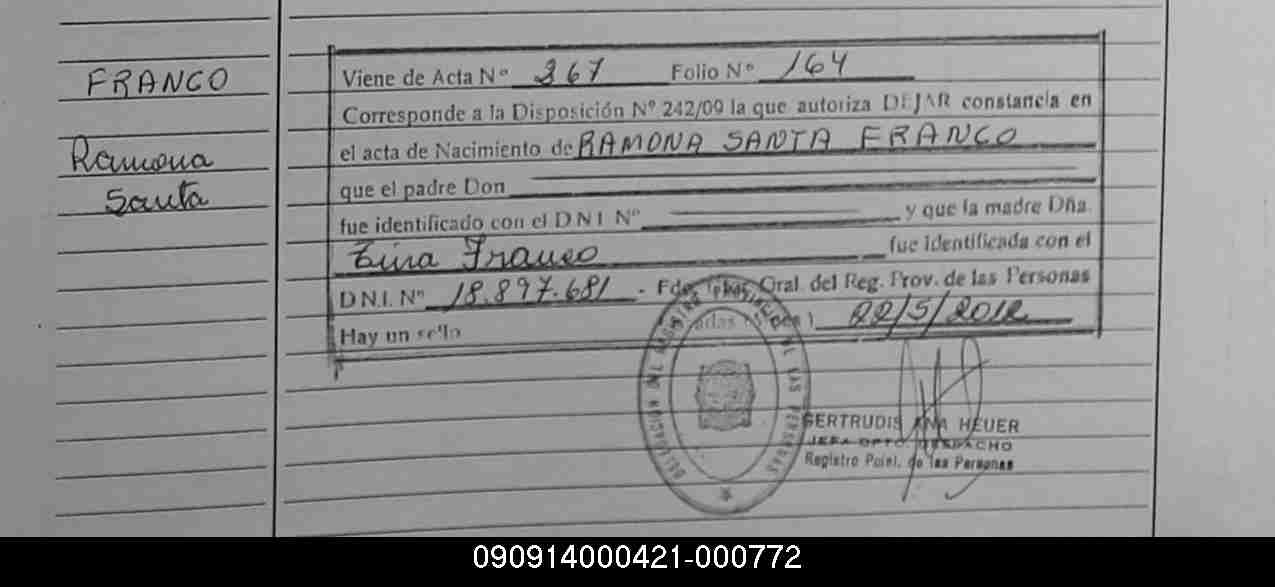 FRANCO
Ramona
Santa
Viene de Acta Nº 367 Folio Nº 164
Corresponde a la Disposición Nº 242/09 la que autoriza DEJAR constancia en
el acta de Nacimiento de RAMONA SANTA FRANCO
que el padre Don
fue identificado con el D N I Nº y que la madre Dña.
Franco fue identificada con el
D.N.I. Nº 18.897.681 Gral. del Reg. Prov. de las Personas
Hay un sello 22/5/2012
DELEGACION DEL REGISTRO PROVINCIAL DE LAS PERSONAS
GERTRUDIS ANA HEUER
JEFA DPTO DESPACHO
Registro Pcial. de las Personas
090914000421-000772